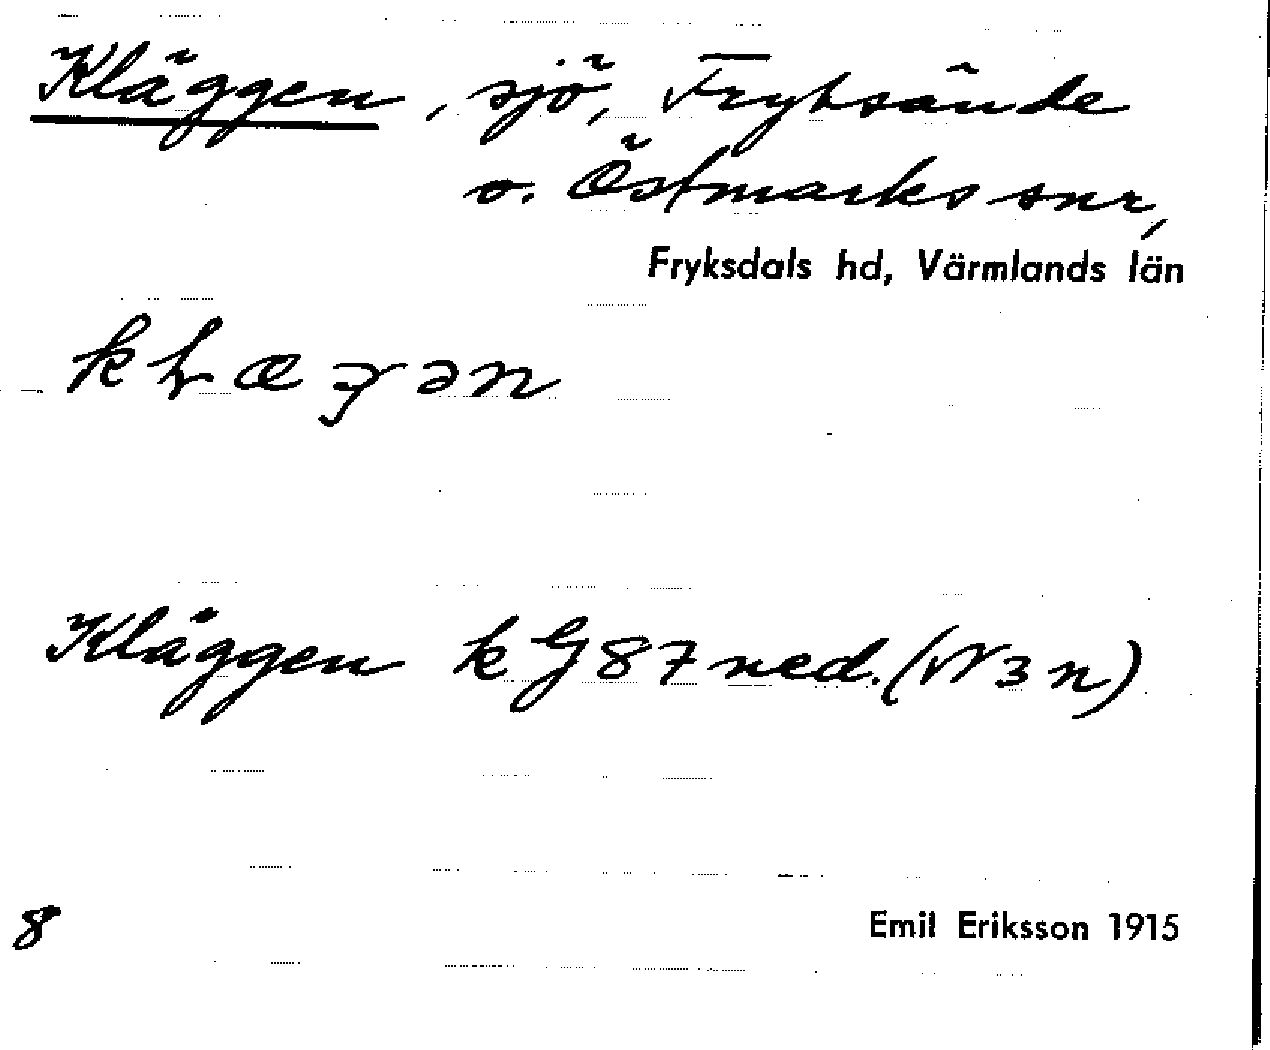 Kläggen, sjö, Fryksände
o. Östmarks snr,
Fryksdals hd, Värmlands län
Kläggen k G 87 ned. (W 3 n)
8
Emil Eriksson 1915